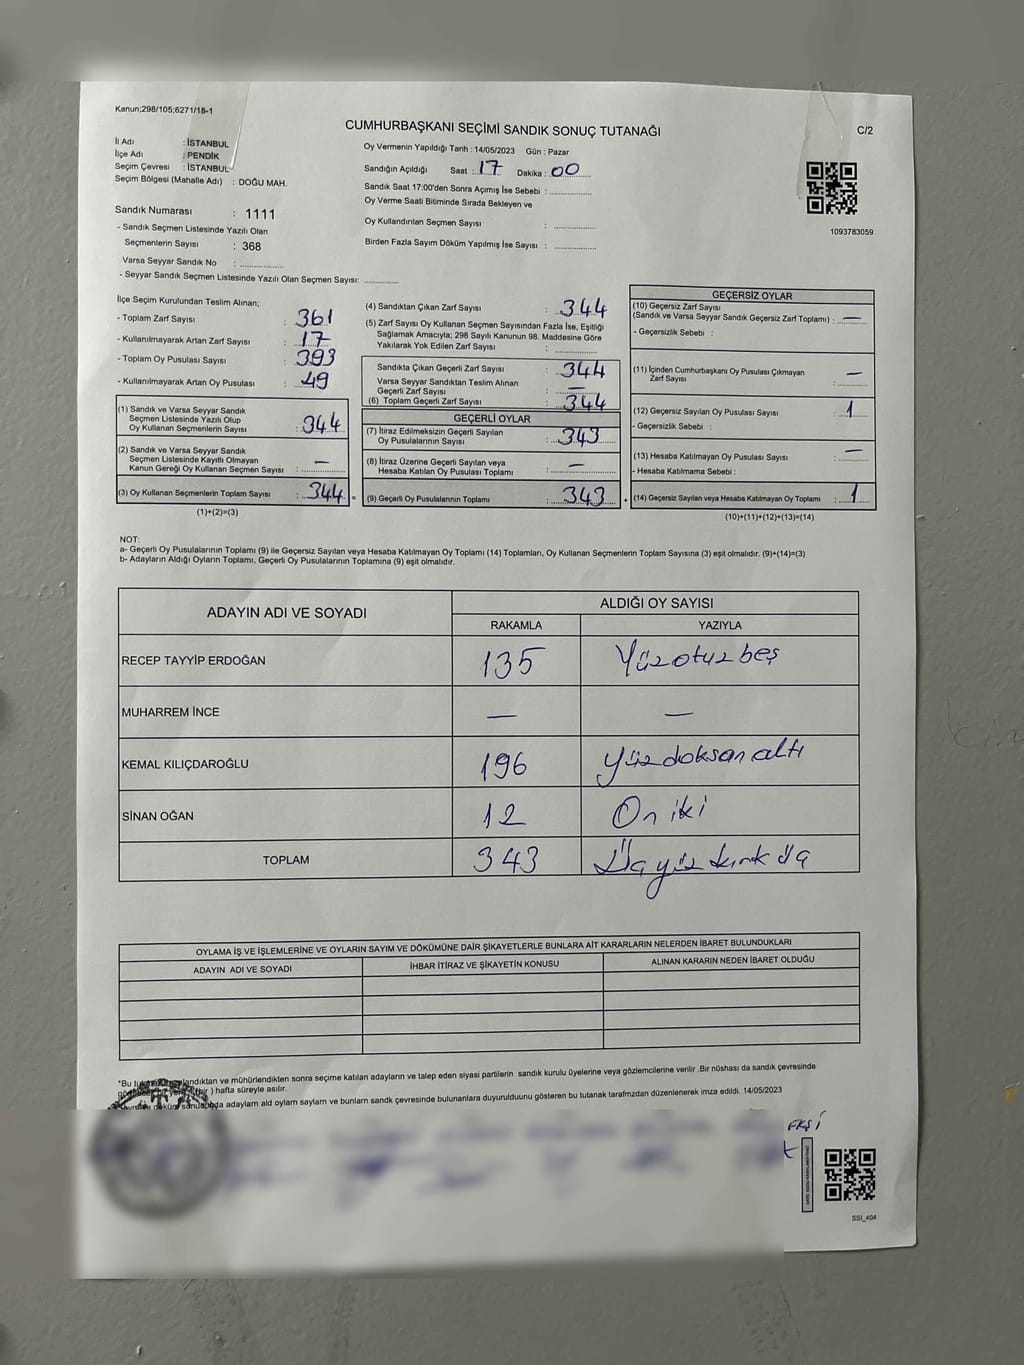 Kanun;298/105;6271/18-1
CUMHURBAŞKANI SEÇİMİ SANDIK SONUÇ TUTANAĞI
C/2
İl Adı : İSTANBUL
İlçe Adı : PENDİK
Seçim Çevresi : İSTANBUL
Seçim Bölgesi (Mahalle Adı) : DOĞU MAH.
Oy Vermenin Yapıldığı Tarih : 14/05/2023 Gün : Pazar
Sandığın Açıldığı Saat : 17 Dakika : 00
Sandık Saat 17:00'den Sonra Açımış İse Sebebi :
Oy Verme Saati Bitiminde Sırada Bekleyen ve
Oy Kullandırılan Seçmen Sayısı :
Birden Fazla Sayım Döküm Yapılmış İse Sayısı :
1093783059
Sandık Numarası : 1111
- Sandık Seçmen Listesinde Yazılı Olan
Seçmenlerin Sayısı : 368
Varsa Seyyar Sandık No :
- Seyyar Sandık Seçmen Listesinde Yazılı Olan Seçmen Sayısı:
İlçe Seçim Kurulundan Teslim Alınan;
- Toplam Zarf Sayısı : 361
- Kullanılmayarak Artan Zarf Sayısı : 17
- Toplam Oy Pusulası Sayısı : 393
- Kullanılmayarak Artan Oy Pusulası : 49
(1) Sandık ve Varsa Seyyar Sandık
Seçmen Listesinde Yazılı Olup
Oy Kullanan Seçmenlerin Sayısı : 344
(2) Sandık ve Varsa Seyyar Sandık
Seçmen Listesinde Kayıtlı Olmayan
Kanun Gereği Oy Kullanan Seçmen Sayısı : —
(3) Oy Kullanan Seçmenlerin Toplam Sayısı : 344 =
(1)+(2)=(3)
(4) Sandıktan Çıkan Zarf Sayısı : 344
(5) Zarf Sayısı Oy Kullanan Seçmen Sayısından Fazla İse, Eşitliği
Sağlamak Amacıyla; 298 Sayılı Kanunun 98. Maddesine Göre
Yakılarak Yok Edilen Zarf Sayısı :
Sandıkta Çıkan Geçerli Zarf Sayısı : 344
Varsa Seyyar Sandıktan Teslim Alınan
Geçerli Zarf Sayısı : —
(6) Toplam Geçerli Zarf Sayısı : 344
GEÇERLİ OYLAR
(7) İtiraz Edilmeksizin Geçerli Sayılan
Oy Pusulalarının Sayısı : 343
(8) İtiraz Üzerine Geçerli Sayılan veya
Hesaba Katılan Oy Pusulası Toplamı : —
(9) Geçerli Oy Pusulalarının Toplamı : 343 +
GEÇERSİZ OYLAR
(10) Geçersiz Zarf Sayısı
(Sandık ve Varsa Seyyar Sandık Geçersiz Zarf Toplamı) : —
- Geçersizlik Sebebi :
(11) İçinden Cumhurbaşkanı Oy Pusulası Çıkmayan
Zarf Sayısı : —
(12) Geçersiz Sayılan Oy Pusulası Sayısı : 1
- Geçersizlik Sebebi :
(13) Hesaba Katılmayan Oy Pusulası Sayısı : —
- Hesaba Katılmama Sebebi :
(14) Geçersiz Sayılan veya Hesaba Katılmayan Oy Toplamı : 1
(10)+(11)+(12)+(13)=(14)
NOT:
a- Geçerli Oy Pusulalarının Toplamı (9) ile Geçersiz Sayılan veya Hesaba Katılmayan Oy Toplamı (14) Toplamları, Oy Kullanan Seçmenlerin Toplam Sayısına (3) eşit olmalıdır. (9)+(14)=(3)
b- Adayların Aldığı Oyların Toplamı, Geçerli Oy Pusulalarının Toplamına (9) eşit olmalıdır.
ADAYIN ADI VE SOYADI
ALDIĞI OY SAYISI
RAKAMLA YAZIYLA
RECEP TAYYİP ERDOĞAN 135 Yüzotuzbeş
MUHARREM İNCE — —
KEMAL KILIÇDAROĞLU 196 Yüzdoksanaltı
SİNAN OĞAN 12 On iki
TOPLAM 343 Üçyüz kırk üç
OYLAMA İŞ VE İŞLEMLERİNE VE OYLARIN SAYIM VE DÖKÜMÜNE DAİR ŞİKAYETLERLE BUNLARA AİT KARARLARIN NELERDEN İBARET BULUNDUKLARI
ADAYIN ADI VE SOYADI İHBAR İTİRAZ VE ŞİKAYETİN KONUSU ALINAN KARARIN NEDEN İBARET OLDUĞU
*Bu ve mühürlendikten sonra seçime katılan adayların ve talep eden siyasi partilerin sandık kurulu üyelerine veya gözlemcilerine verilir .Bir nüshası da sandık çevresinde
bir ) hafta süreyle asılır.
adayların ald oyların sayların ve bunların sandk çevresinde bulunanlara duyurulduunu gösteren bu tutanak tarafmzdan düzenlenerek imza edildi. 14/05/2023
SSI_404